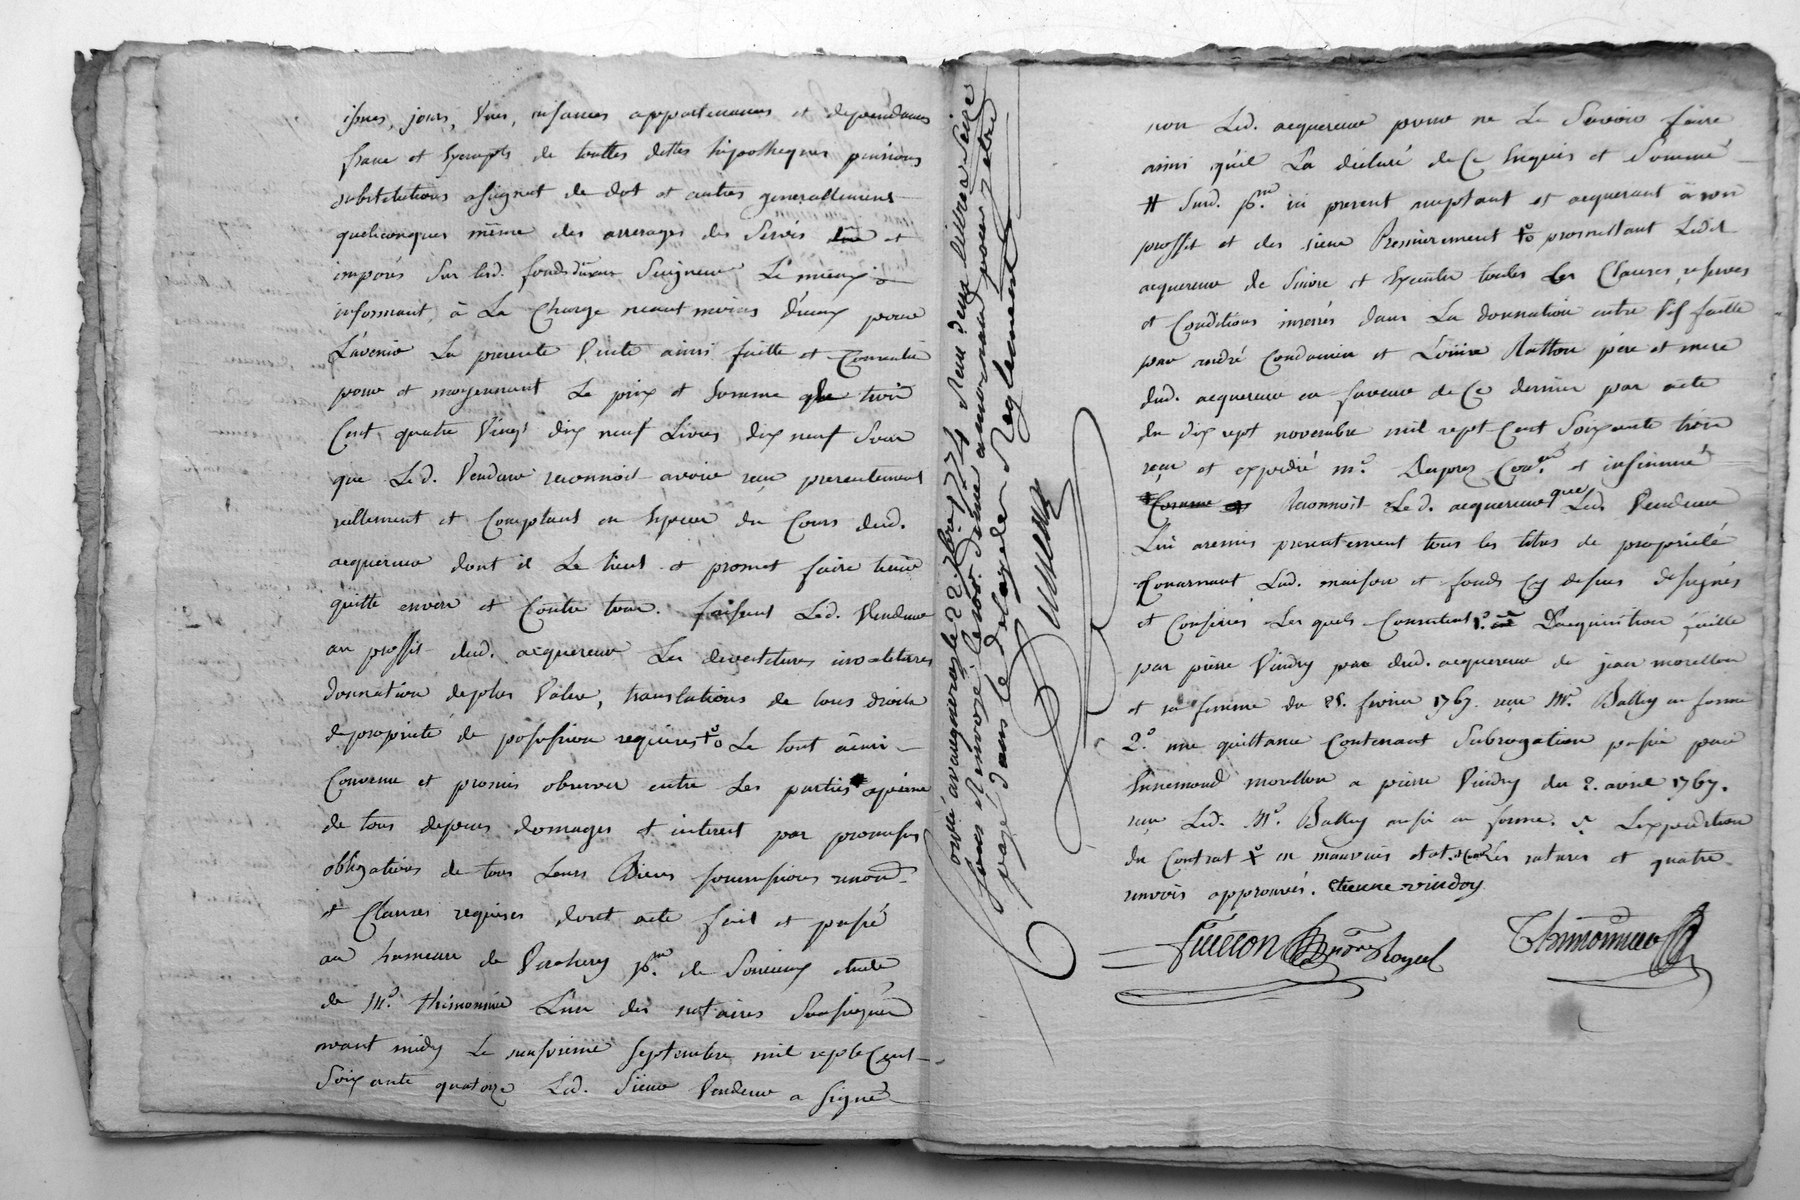 issues, jours, Vües, aisances appartenances et dependances
franc et Exempts de touttes dettes hipotheques pensions
substitutions assignat de dot et autres generallement
quelconques même des arrerages des Servis et
imposés Sur lesd. fonds Seigneur Le mieux
informant, à La Charge neautmoins d'iceux pour
L'avenir La presente Vente ainsi faitte et Convenüe
pour et moyennant Le prix et Somme de trois
Cent quatre Vingt dix neuf Livres dix neuf Sous
que Led. Vendeur reconnoit avoir reçu presentement
reellement et Comptant en Especes du Cours dud.
acquereur dont il Le tient et promet faire tenir
quitte envers et Contre tous. faisant Led. Vendeur
au proffit dud. acquereur Les devestitures investitures
donnation de plus Valüe, translations de tous droits
de propriété de possession requises Le tout ainsi
Convenu et promis observer entre Les parties apeine
de tous depens domages et interest par promesses
obligations de tous Leurs Biens soumissions renond.
et Clauses requises dont acte fait et passé
au hameau de Vachery psse. de étude
de Me. Thimonnier L'un des notaires Soussignés
avant midy Le septembre mil sept Cent
Soixante quatorze Led. Sieur Vendeur a Signé
Controllé a le 22 7bre 1774 Reçu deux livres seize
sous Renvoyé
payé dans le delay de Reglement
non Led. acquereur pour ne Le Savoir faire
ainsi qu'il L'a déclaré de Ce Enquis et Sommé
# Surd. psse. ici present acceptant et acquerant à son
proffit et des siens Premierement promettant Ledit
acquereur de Suivre et Executer toutes Les Clauses, reserves
et Conditions inserés dans La donnation entre Vifs faitte
par andré Condamin et Loüise Ratton père et mere
dud. acquereur en faveur de Ce dernier par acte
du dix sept novembre mil sept Cent Soixante trois
reçu et expedié Me. et insinué
Reconnoit Led. acquereur que Led. Vendeur
Lui aremis presentement tous les titres de propriété
Concernant Lad. maison et fonds Cy dessus designés
et Confinés Les quels Consistent 1°. D'acquisition faitte
par pierre Vindry dud. acquereur de jean morellon
et sa femme du 25. fevrier 1767. reçu Me. Ballay en forme
2°. une quittance Contenant Subrogation passée par
Ennemond morellon a pierre Vindry du 2. avril 1767.
reçu Led. Me. Ballay aussi en forme. L'expedition
du Contrat en mauvais état. Les ratures et quatre
renvois approuvés. Etienne vindry
Thimonnier